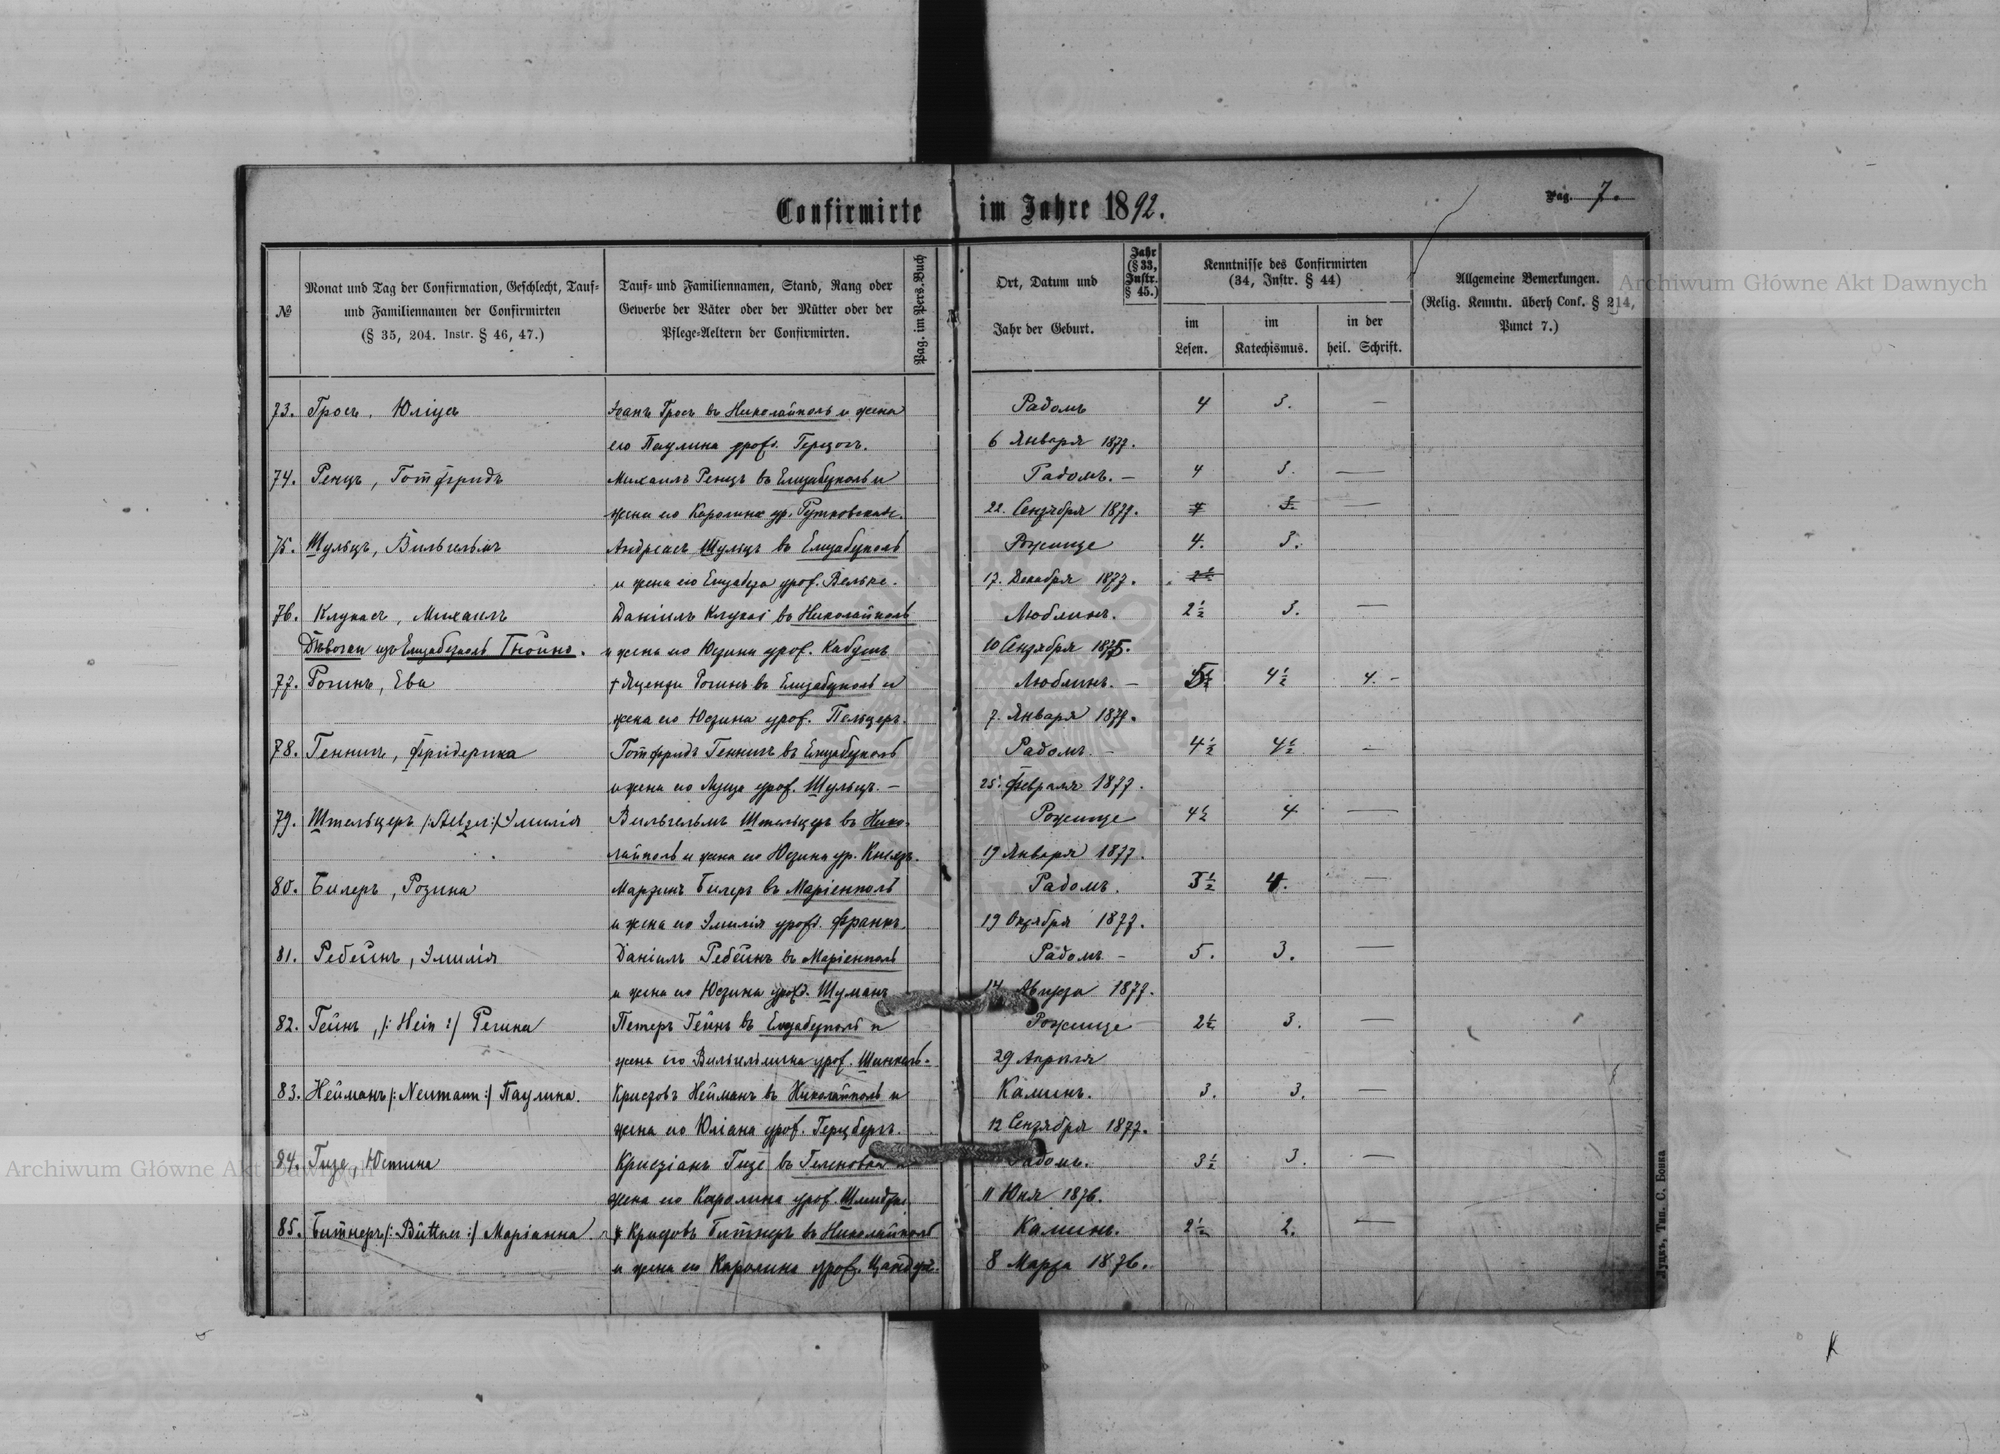 Confirmirte im Jahre 1892.
Pag. 7.
№
Monat und Tag der Confirmation, Geschlecht, Tauf-
und Familiennamen der Confirmirten
(§ 35, 204. Instr. § 46, 47.)
Tauf- und Familiennamen, Stand, Rang oder
Gewerbe der Väter oder der Mütter oder der
Pflege-Aeltern der Confirmirten.
Pag. im Pers.Buch
Ort, Datum und
Jahr der Geburt.
Jahr
(§ 33,
Instr.
§ 45.)
Kenntnisse des Confirmirten
(34, Instr. § 44)
im
Lesen.
im
Katechismus.
in der
heil. Schrift.
Allgemeine Bemerkungen.
(Relig. Kenntn. überh Conf. § 214,
Punct 7.)
73. Гросъ, Юліусъ Гросъ въ Николайполь и жена Радомъ 4 3. —
его Паулина урож. Герцогъ. 6 Января 1877.
74. Ренцъ, Готфридъ Михаилъ Ренцъ въ Елизабетполь и Радомъ. — 4 3. —
жена его Каролина ур. 22. Сентября 1877. 4 3 —
75. Шульцъ, Вильгельмъ Андреасъ Шульцъ въ Елизабетполь Рожище 4. 3.
и жена его Елизабета урож. Вельке. 17. Декабря 1877.
76. Клукасъ, Михаилъ Даніилъ въ Николайполь Люблинъ. 2½ 3. —
из Елизабетполь и жена его Юстина урож. 10 Сентября
77. Рогинъ, Ева † Рогинъ въ Елизабетполь и Люблинъ. — 4½ 4. -
жена его Юстина урож. Пельцеръ. 7. Января 1877.
78. Геннигъ, Фридерика Готфридъ Геннигъ въ Елизабетполь Радомъ. — 4½ 4½ —
и жена его урож. Шульцъ. — 25. Февраля 1877.
79. Штельцеръ /: Stelzer :/ Эмилія Вильгельмъ Штельцеръ въ Нико- Рожище 4½ 4 —
лайполь и жена его Юстина ур. 19 Января 1877.
80. Билеръ, Розина Мартинъ Билеръ въ Маріенполь Радомъ. 3½ 4. —
и жена его Эмилія урож. Франкъ. 19 Октября 1877.
81. Ребейнъ, Эмилія Даніилъ Ребейнъ въ Маріенполь Радомъ — 5. 3. —
и жена его Юстина урожд. Шуманъ Августа 1877.
82. Гейнъ, /: Hein :/ Регина Петеръ Гейнъ въ Елизабетполь и Рожище 2½ 3. —
жена его Вильгельмина урож. 29 Апрѣля
83. Нейманъ /: Neumann :/ Паулина. Нейманъ въ Николайполь и Калишъ. 3. 3. —
жена его Юліана урож. Герцбергъ. 12 Сентября 1877.
84. Гизе, Юстина Кристіанъ Гизе въ Радомъ. 3½ 3. —
жена его Каролина урож. 11 Юня 1876.
85. Битнеръ /: Büttner :/ Маріанна. Битнеръ въ Николайполь Калишъ. 2½ 2. —
и жена его Каролина урож. 8 Марта 1876.
Луцкъ, Тип. С. Бонка
Archiwum Główne Akt Dawnych
Archiwum Główne Akt Dawnych